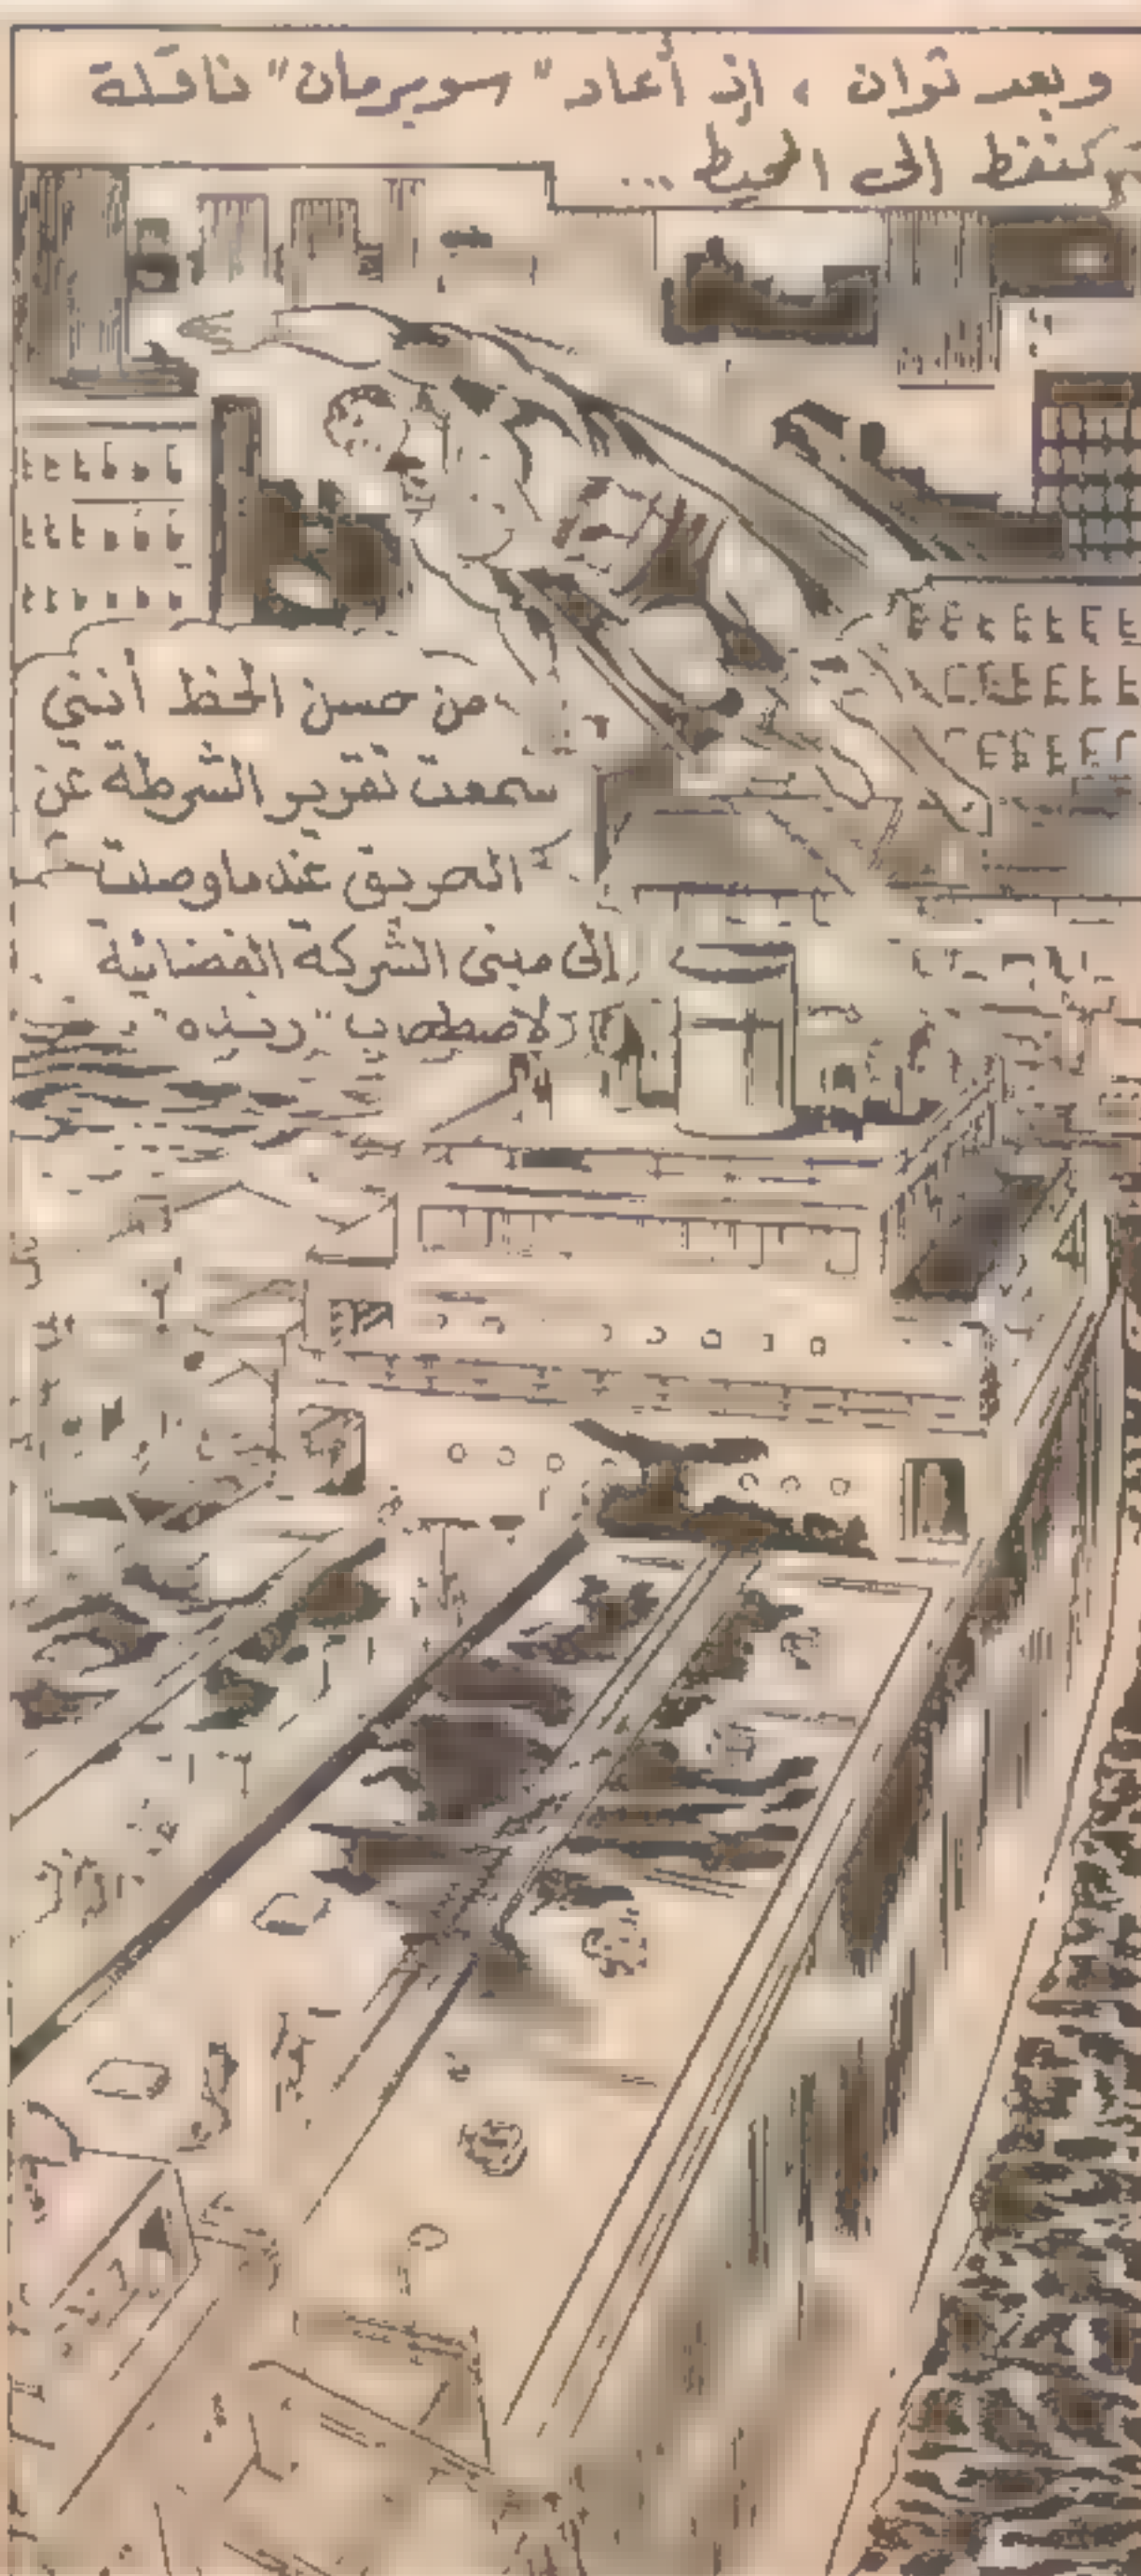 وبعد ثوان ، إذ أعاد "سوبرمان" ناقلة
النفط الى المحيط ...
من حسن الحظ أنني
سمعت تقرير الشرطة عن
الحريق عندما وصلت
إلى مبنى الشركة الفضائية
لاصطحاب "رنده"